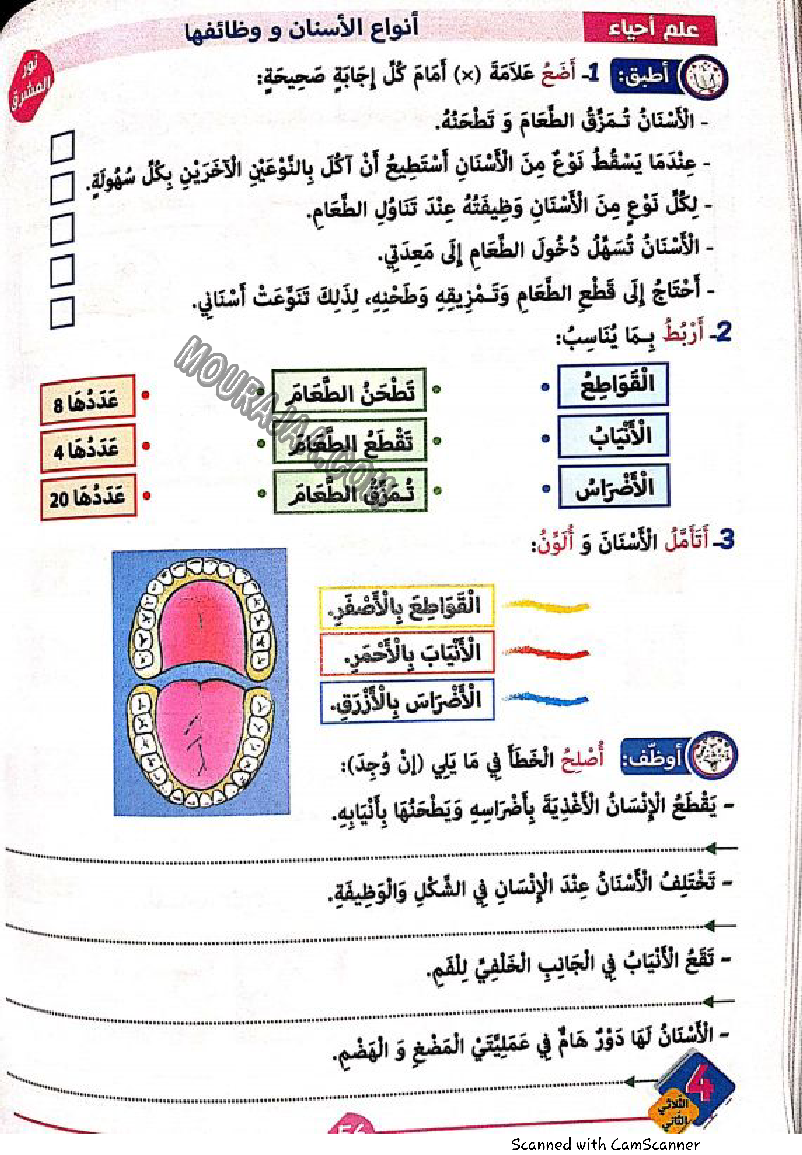 علم أحياء
أنواع الأسنان و وظائفها
نور المشرق
أطبق: 1- أَضَعُ عَلاَمَةَ (×) أَمَامَ كُلِّ إِجَابَةٍ صَحِيحَةٍ:
- الْأَسْنَانُ تُمَزِّقُ الطَّعَامَ وَ تَطْحَنُهُ.
- عِنْدَمَا يَسْقُطُ نَوْعٌ مِنَ الْأَسْنَانِ أَسْتَطِيعُ أَنْ آكُلَ بِالنَّوْعَيْنِ الْآخَرَيْنِ بِكُلِّ سُهُولَةٍ.
- لِكُلِّ نَوْعٍ مِنَ الْأَسْنَانِ وَظِيفَتُهُ عِنْدَ تَنَاوُلِ الطَّعَامِ.
- الْأَسْنَانُ تُسَهِّلُ دُخُولَ الطَّعَامِ إِلَى مَعِدَتِي.
- أَحْتَاجُ إِلَى قَطْعِ الطَّعَامِ وَتَمْزِيقِهِ وَطَحْنِهِ، لِذَلِكَ تَنَوَّعَتْ أَسْنَانِي.
2- أَرْبُطُ بِمَا يُنَاسِبُ:
الْقَوَاطِعُ • • تَطْحَنُ الطَّعَامَ • • عَدَدُهَا 8
الْأَنْيَابُ • • تَقْطَعُ الطَّعَامَ • • عَدَدُهَا 4
الْأَضْرَاسُ • • تُمَزِّقُ الطَّعَامَ • • عَدَدُهَا 20
MOURAJAA.COM
3- أَتَأَمَّلُ الْأَسْنَانَ وَ أُلَوِّنُ:
الْقَوَاطِعَ بِالْأَصْفَرِ.
الْأَنْيَابَ بِالْأَحْمَرِ.
الْأَضْرَاسَ بِالْأَزْرَقِ.
أوظّف: أُصْلِحُ الْخَطَأَ فِي مَا يَلِي (إِنْ وُجِدَ):
- يَقْطَعُ الْإِنْسَانُ الْأَغْذِيَةَ بِأَضْرَاسِهِ وَيَطْحَنُهَا بِأَنْيَابِهِ.
- تَخْتَلِفُ الْأَسْنَانُ عِنْدَ الْإِنْسَانِ فِي الشَّكْلِ وَالْوَظِيفَةِ.
- تَقَعُ الْأَنْيَابُ فِي الْجَانِبِ الْخَلْفِيِّ لِلْفَمِ.
- الْأَسْنَانُ لَهَا دَوْرٌ هَامٌّ فِي عَمَلِيَّتَيْ الْمَضْغِ وَ الْهَضْمِ.
4
الثلاثي الثاني
Scanned with CamScanner